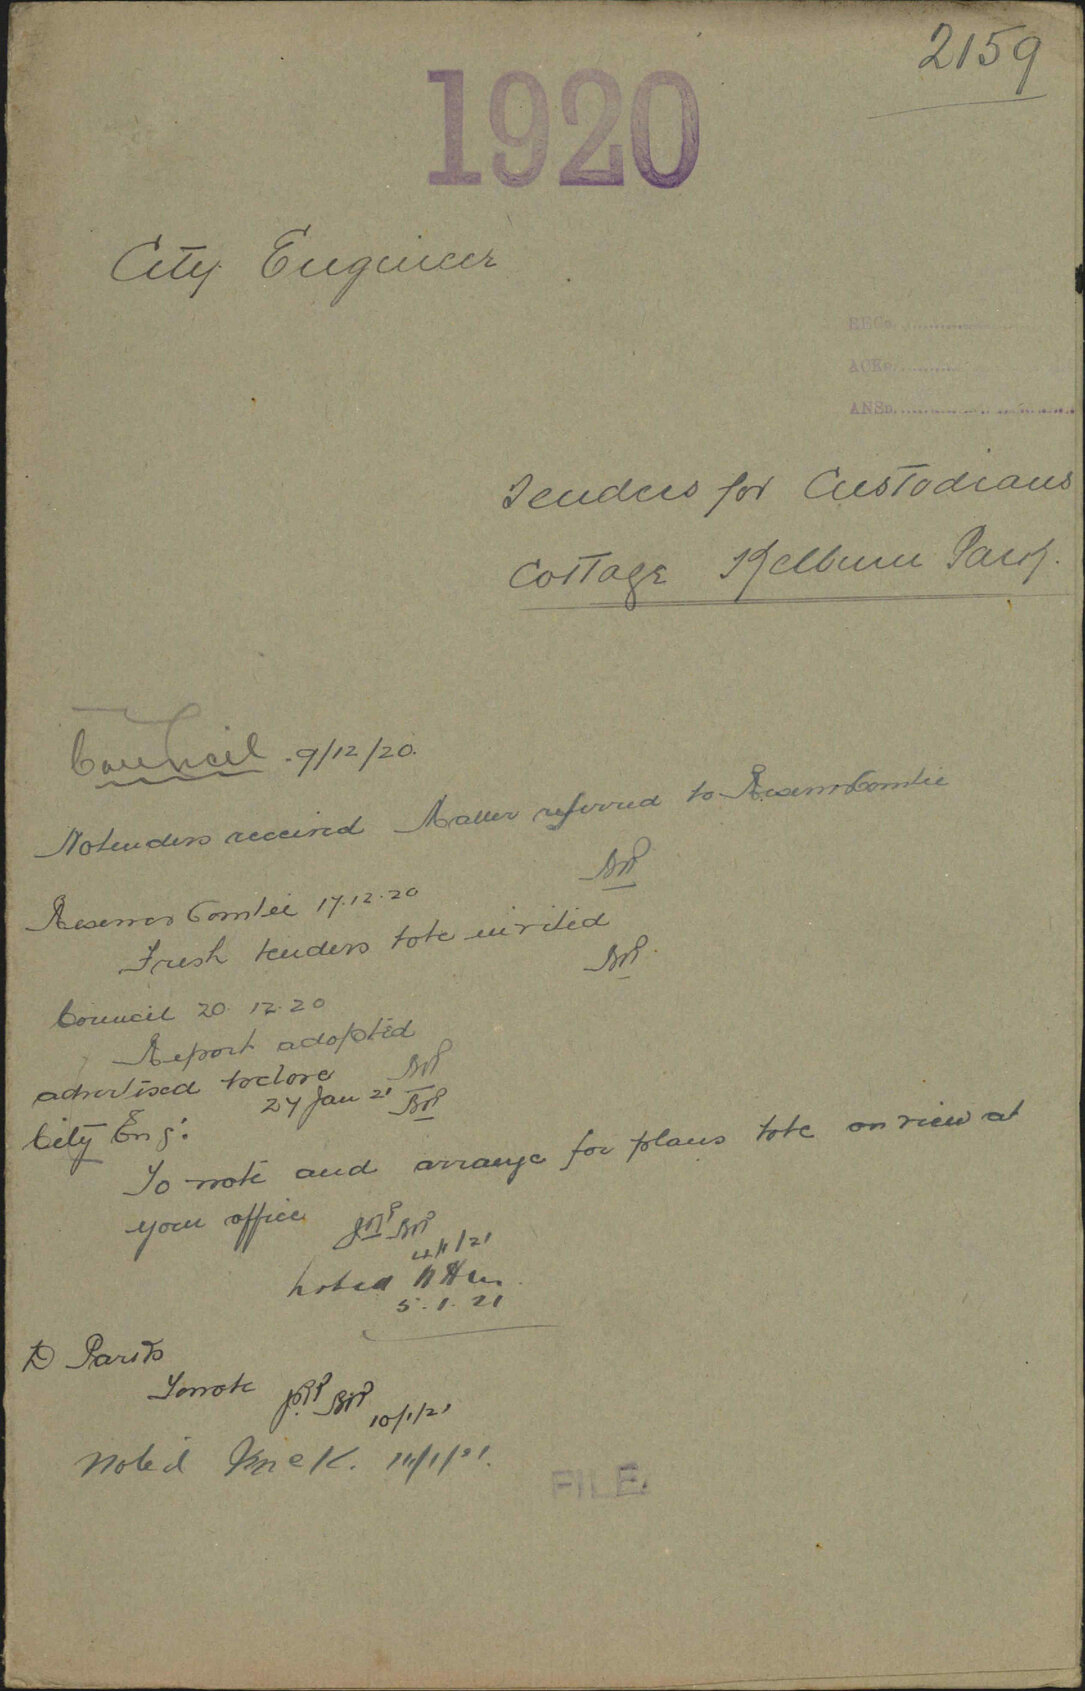 2159
1920
City Engineer
REC
ACK
ANS
Tenders for Custodians
Cottage Kelburn Park.
Council 9/12/20.
No tenders received Matter referred to Reserves Comtee
Reserves Comtee 17.12.20
Fresh tenders to be invited
Council 20.12.20
Report adopted
advertised to close
27 Jan 21
City Eng:
To note and arrange for plans to be on view at
your office
4/1/21
noted
5.1.21
D Parks
To note
10/1/21
Noted JMcK. 11/1/21.
FILE.